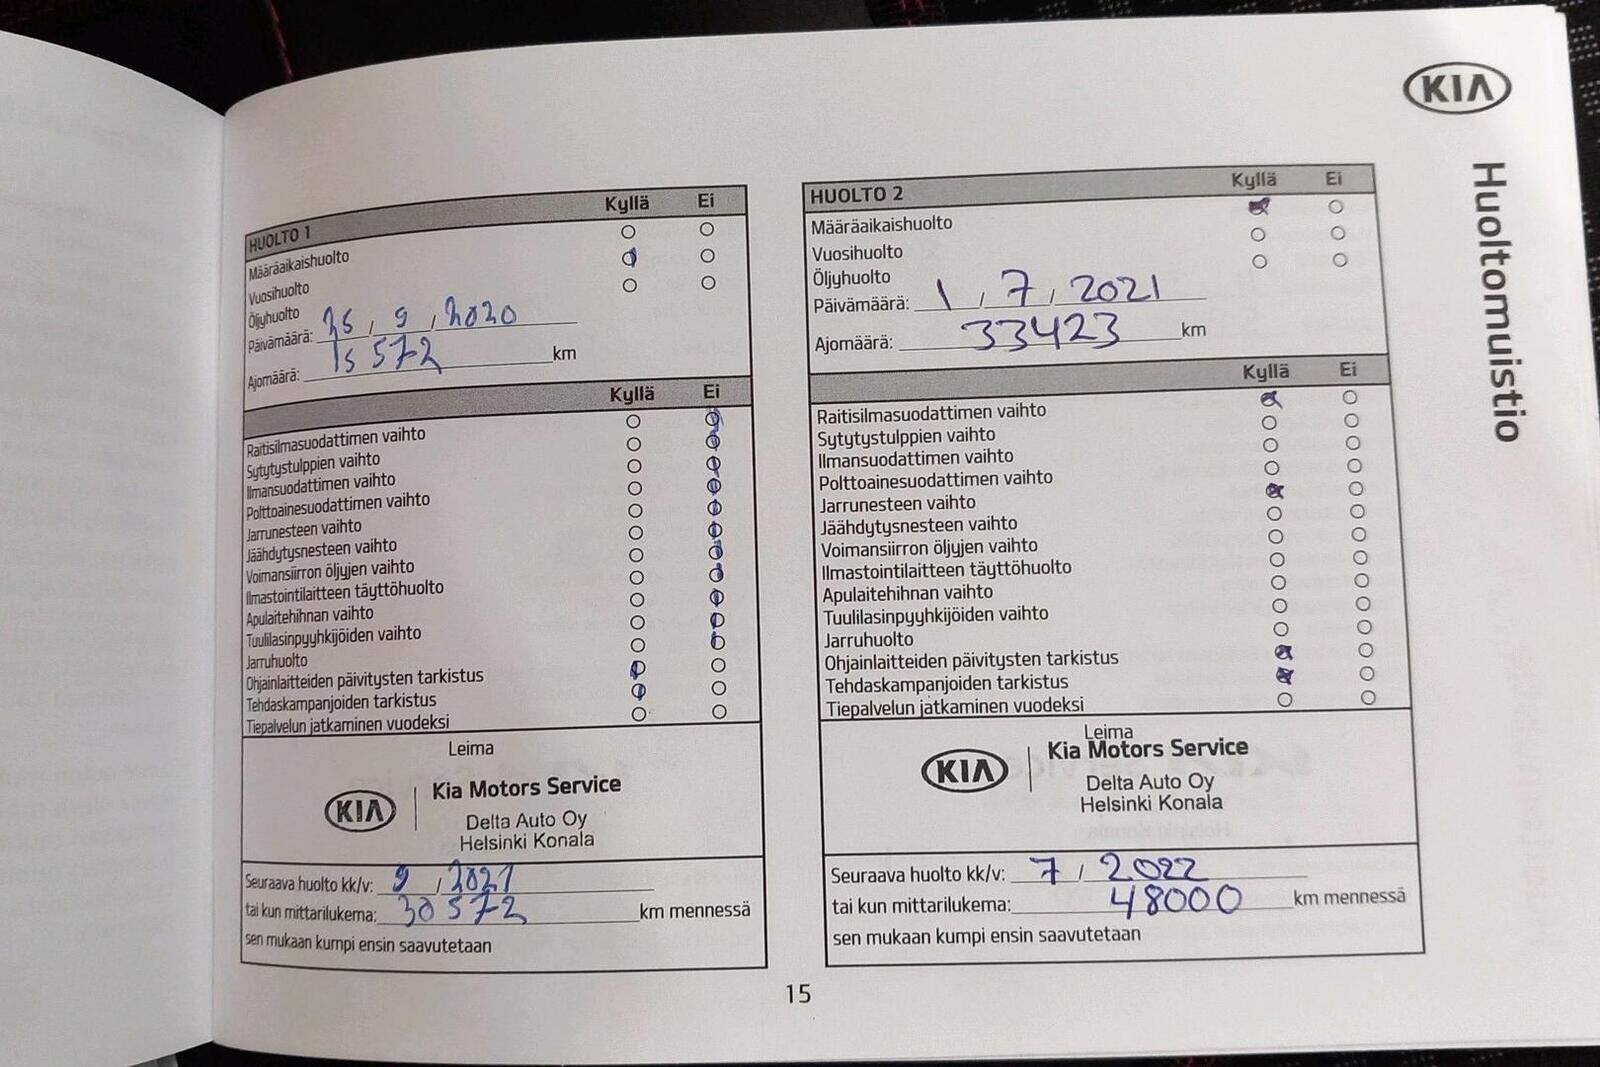 KIA
Huoltomuistio
HUOLTO 1 Kyllä Ei
Määräaikaishuolto
Vuosihuolto
Öljyhuolto
Päivämäärä: 25 / 9 / 2020
Ajomäärä: 15 572 km
Kyllä Ei
Raitisilmasuodattimen vaihto
Sytytystulppien vaihto
Ilmansuodattimen vaihto
Polttoainesuodattimen vaihto
Jarrunesteen vaihto
Jäähdytysnesteen vaihto
Voimansiirron öljyjen vaihto
Ilmastointilaitteen täyttöhuolto
Apulaitehihnan vaihto
Tuulilasinpyyhkijöiden vaihto
Jarruhuolto
Ohjainlaitteiden päivitysten tarkistus
Tehdaskampanjoiden tarkistus
Tiepalvelun jatkaminen vuodeksi
Leima
KIA Kia Motors Service
Delta Auto Oy
Helsinki Konala
Seuraava huolto kk/v: 9 / 2021
tai kun mittarilukema: 30 572 km mennessä
sen mukaan kumpi ensin saavutetaan
HUOLTO 2 Kyllä Ei
Määräaikaishuolto
Vuosihuolto
Öljyhuolto
Päivämäärä: 1 / 7 / 2021
Ajomäärä: 33423 km
Kyllä Ei
Raitisilmasuodattimen vaihto
Sytytystulppien vaihto
Ilmansuodattimen vaihto
Polttoainesuodattimen vaihto
Jarrunesteen vaihto
Jäähdytysnesteen vaihto
Voimansiirron öljyjen vaihto
Ilmastointilaitteen täyttöhuolto
Apulaitehihnan vaihto
Tuulilasinpyyhkijöiden vaihto
Jarruhuolto
Ohjainlaitteiden päivitysten tarkistus
Tehdaskampanjoiden tarkistus
Tiepalvelun jatkaminen vuodeksi
Leima
KIA Kia Motors Service
Delta Auto Oy
Helsinki Konala
Seuraava huolto kk/v: 7 / 2022
tai kun mittarilukema: 48000 km mennessä
sen mukaan kumpi ensin saavutetaan
15